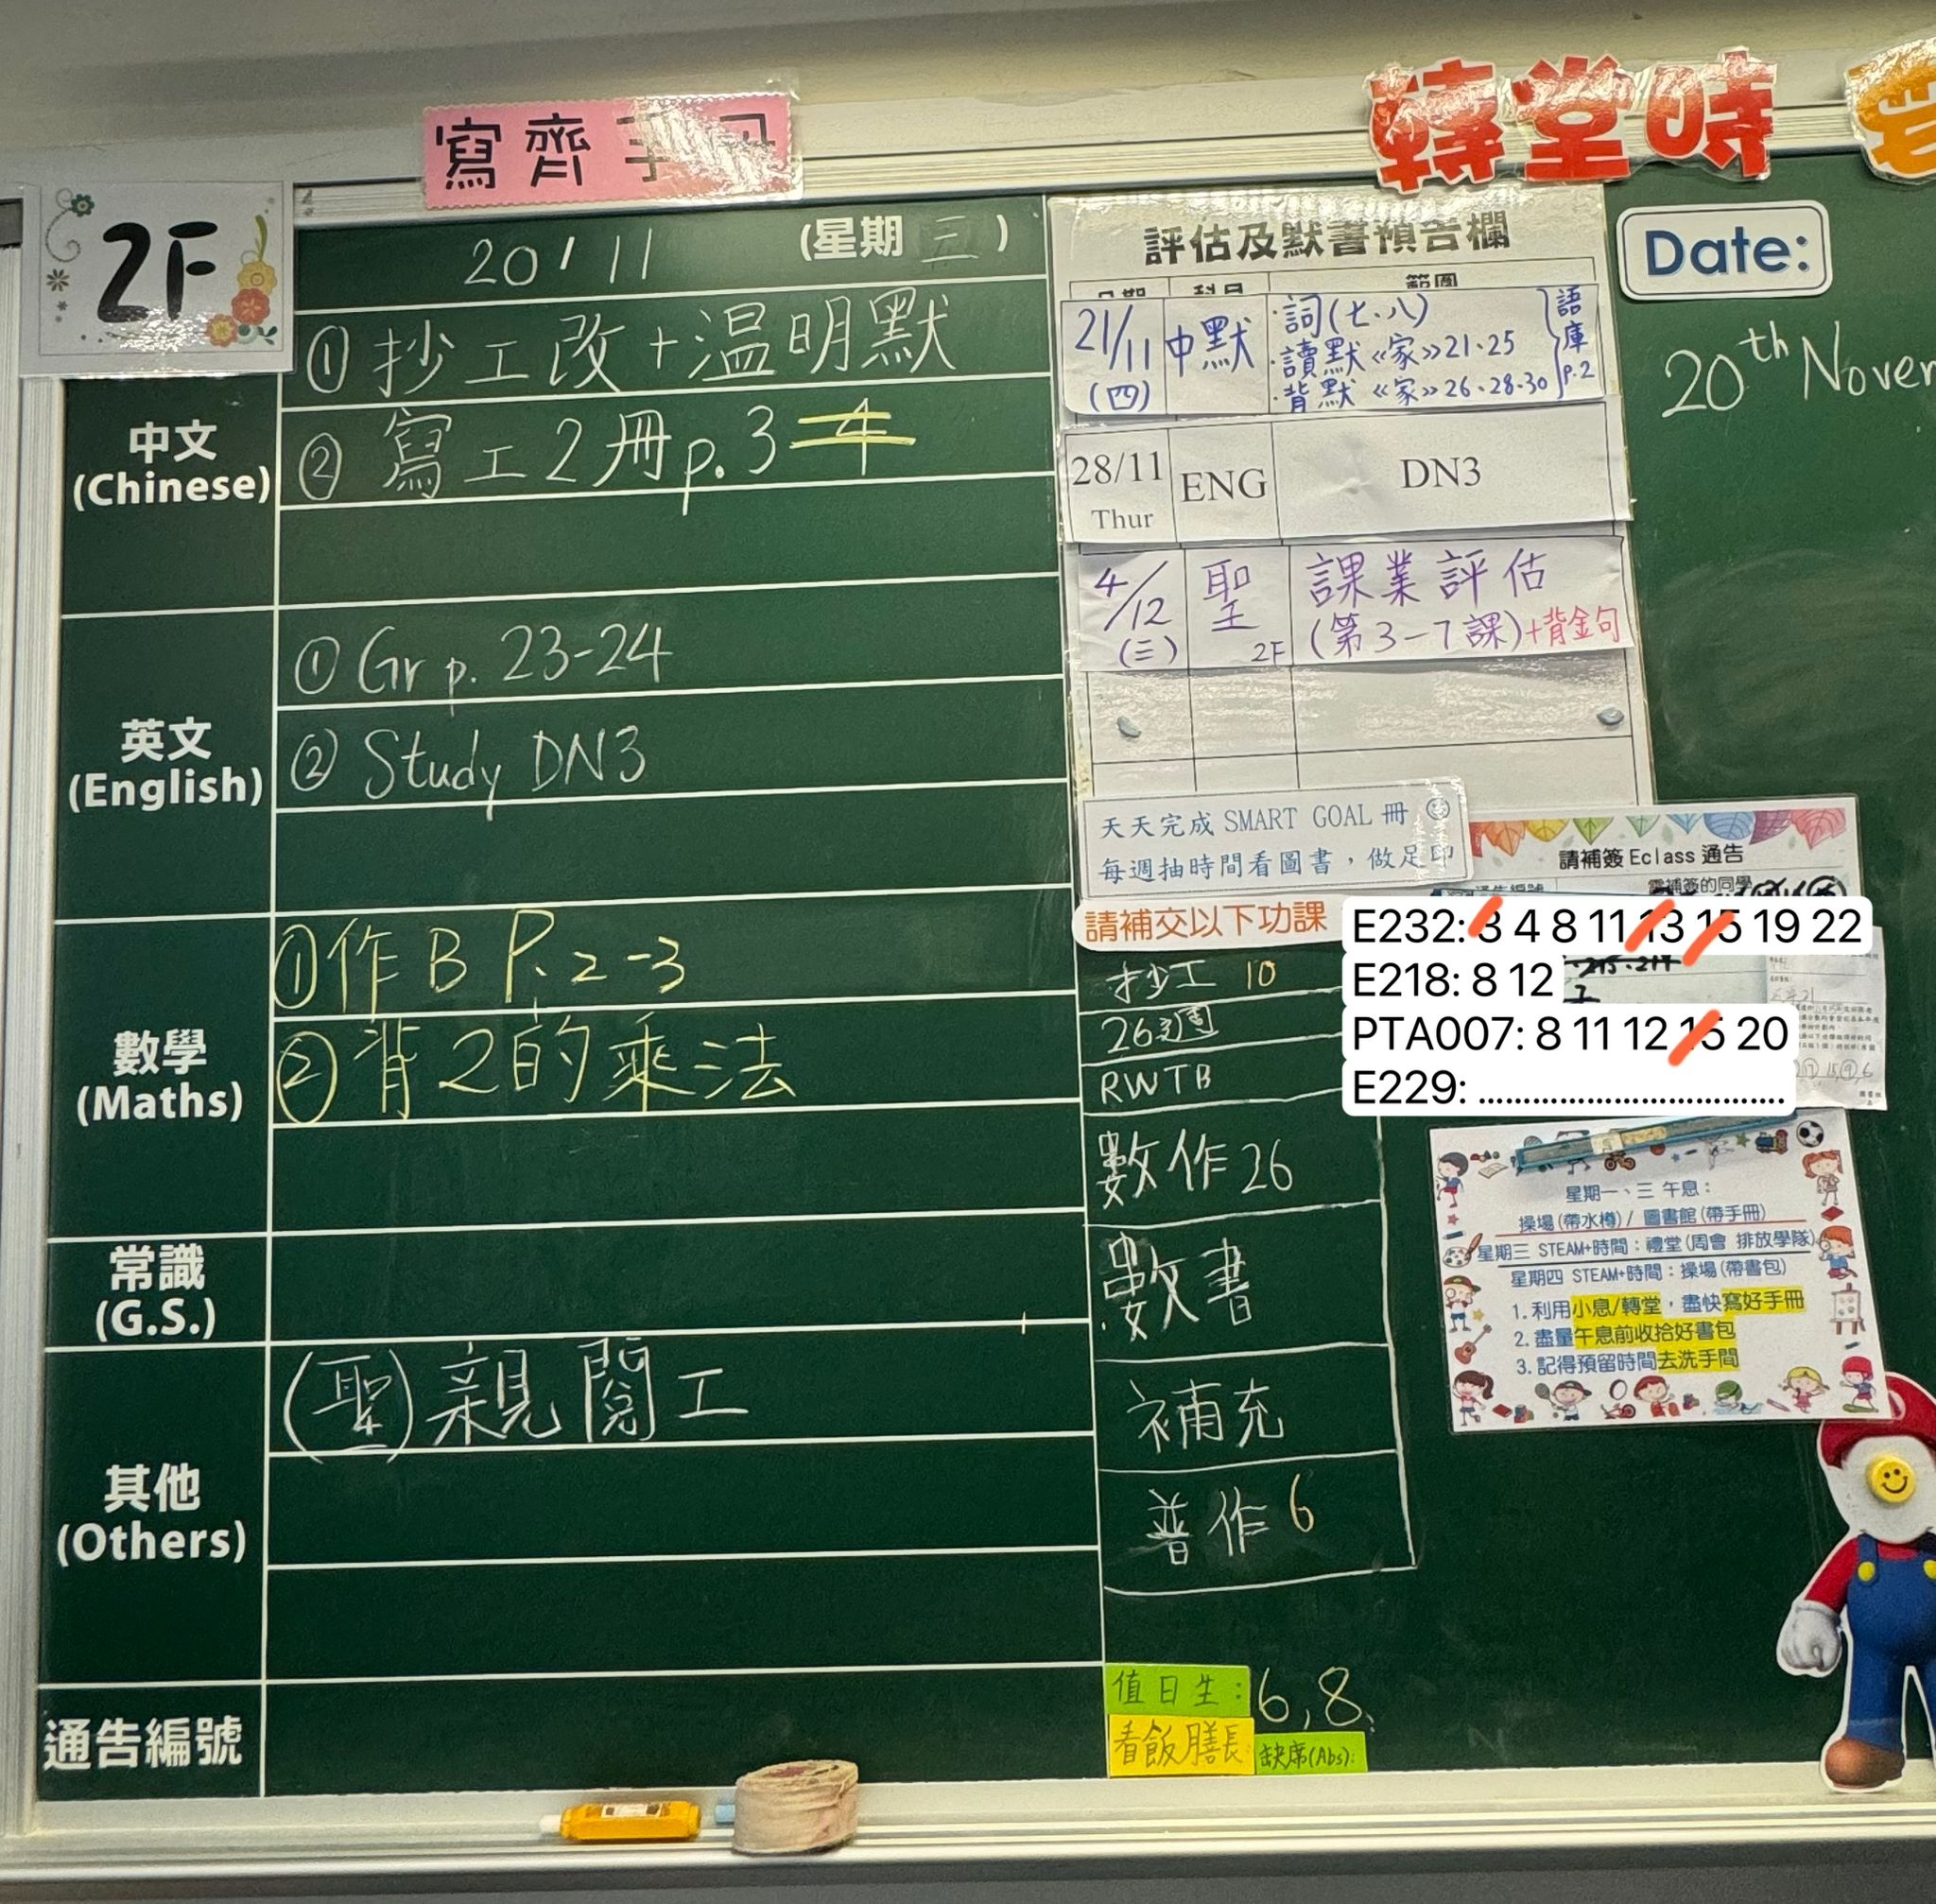 寫齊手冊
轉堂時
2F
20/11 (星期三)
中文
(Chinese)
①抄工改+温明默
②寫工2冊p.3-4
英文
(English)
①Gr p. 23-24
②Study DN3
數學
(Maths)
①作B P.2-3
②背2的乘法
常識
(G.S.)
其他
(Others)
(聖)親閱工
通告編號
評估及默書預告欄
日期 科目 範圍
21/11 (四) 中默
·詞(七·八)
·讀默《家》21·25
·背默《家》26·28·30
語庫p.2
28/11 Thur ENG DN3
4/12 (三) 聖 2F 課業評估
(第3-7課)+背金句
天天完成 SMART GOAL 冊
每週抽時間看圖書，做足印
請補簽 Eclass 通告
需補簽的同學
請補交以下功課
抄工 10
26週
RWTB
數作26
數書
補充
普作6
E232: 3 4 8 11 13 15 19 22
E218: 8 12
PTA007: 8 11 12 15 20
E229: ................................
星期一、三 午息：
操場(帶水樽) / 圖書館(帶手冊)
星期三 STEAM+時間：禮堂(周會 排放學隊)
星期四 STEAM+時間：操場(帶書包)
1. 利用小息/轉堂，盡快寫好手冊
2. 盡量午息前收拾好書包
3. 記得預留時間去洗手間
值日生： 6,8
看飯膳長
缺席(Abs):
Date:
20th Novem